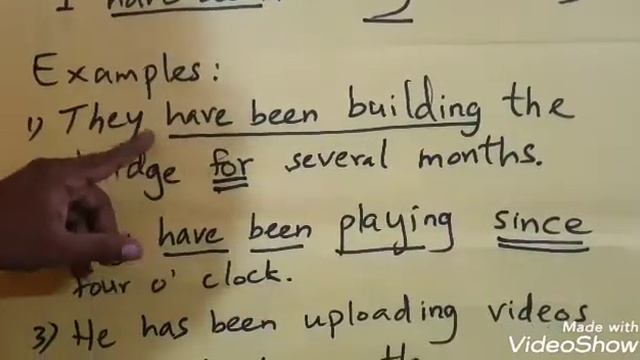 I have been
Examples:
1) They have been building the
bridge for several months.
have been playing since
four o' clock.
3) He has been uploading videos
the
Made with
VideoShow